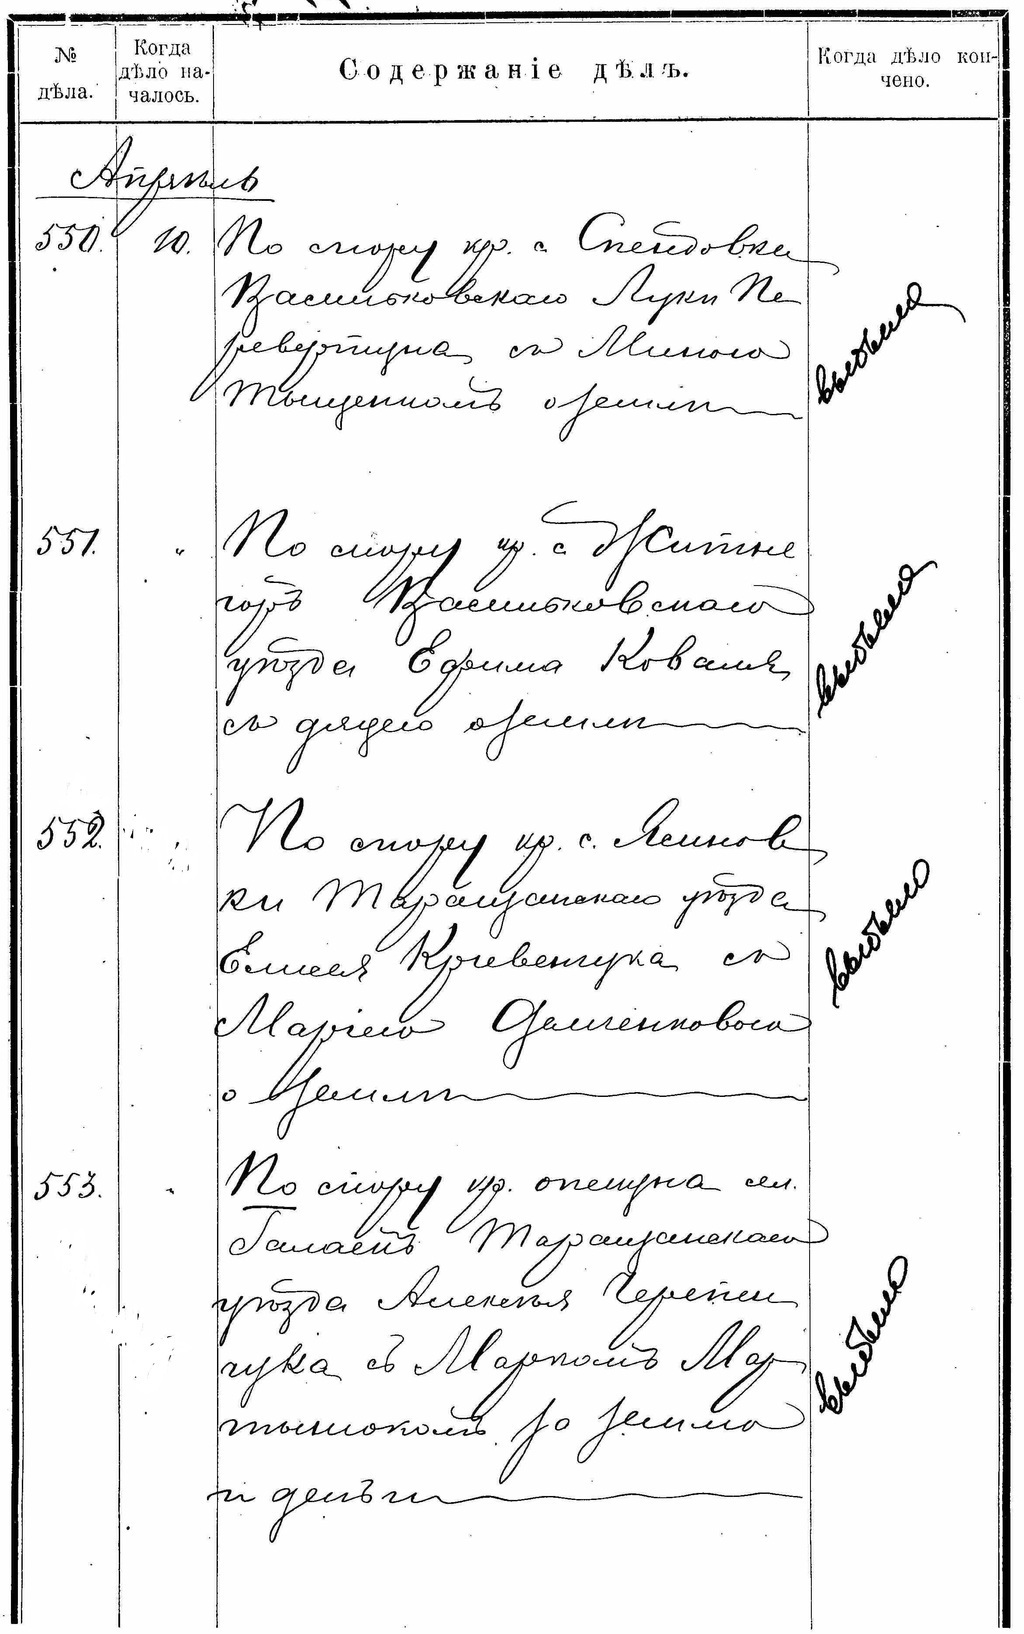 № дѣла.
Когда дѣло на-
чалось.
Содержаніе дѣлъ.
Когда дѣло кон-
чено.
Апрѣль
550. 10. По спору кр. с.
Васильковскаго Луки Пе
ревертуна съ
о землѣ
выбыло
551. " По спору кр. с. Житне
горъ Васильковскаго
уѣзда Ефима Коваля
съ дядею о землѣ
выбыло
552. " По спору кр. с. Ясинов
ки Таращанскаго уѣзда
Елисея Кривенчука съ
Маріею Демченковою
о землѣ
выбыло
553. " По спору кр. опекуна сел.
Таращанскаго
уѣзда Алексѣя Черепен
чука съ Маркомъ Мар
тынюкомъ за землю
и деньги
выбыло